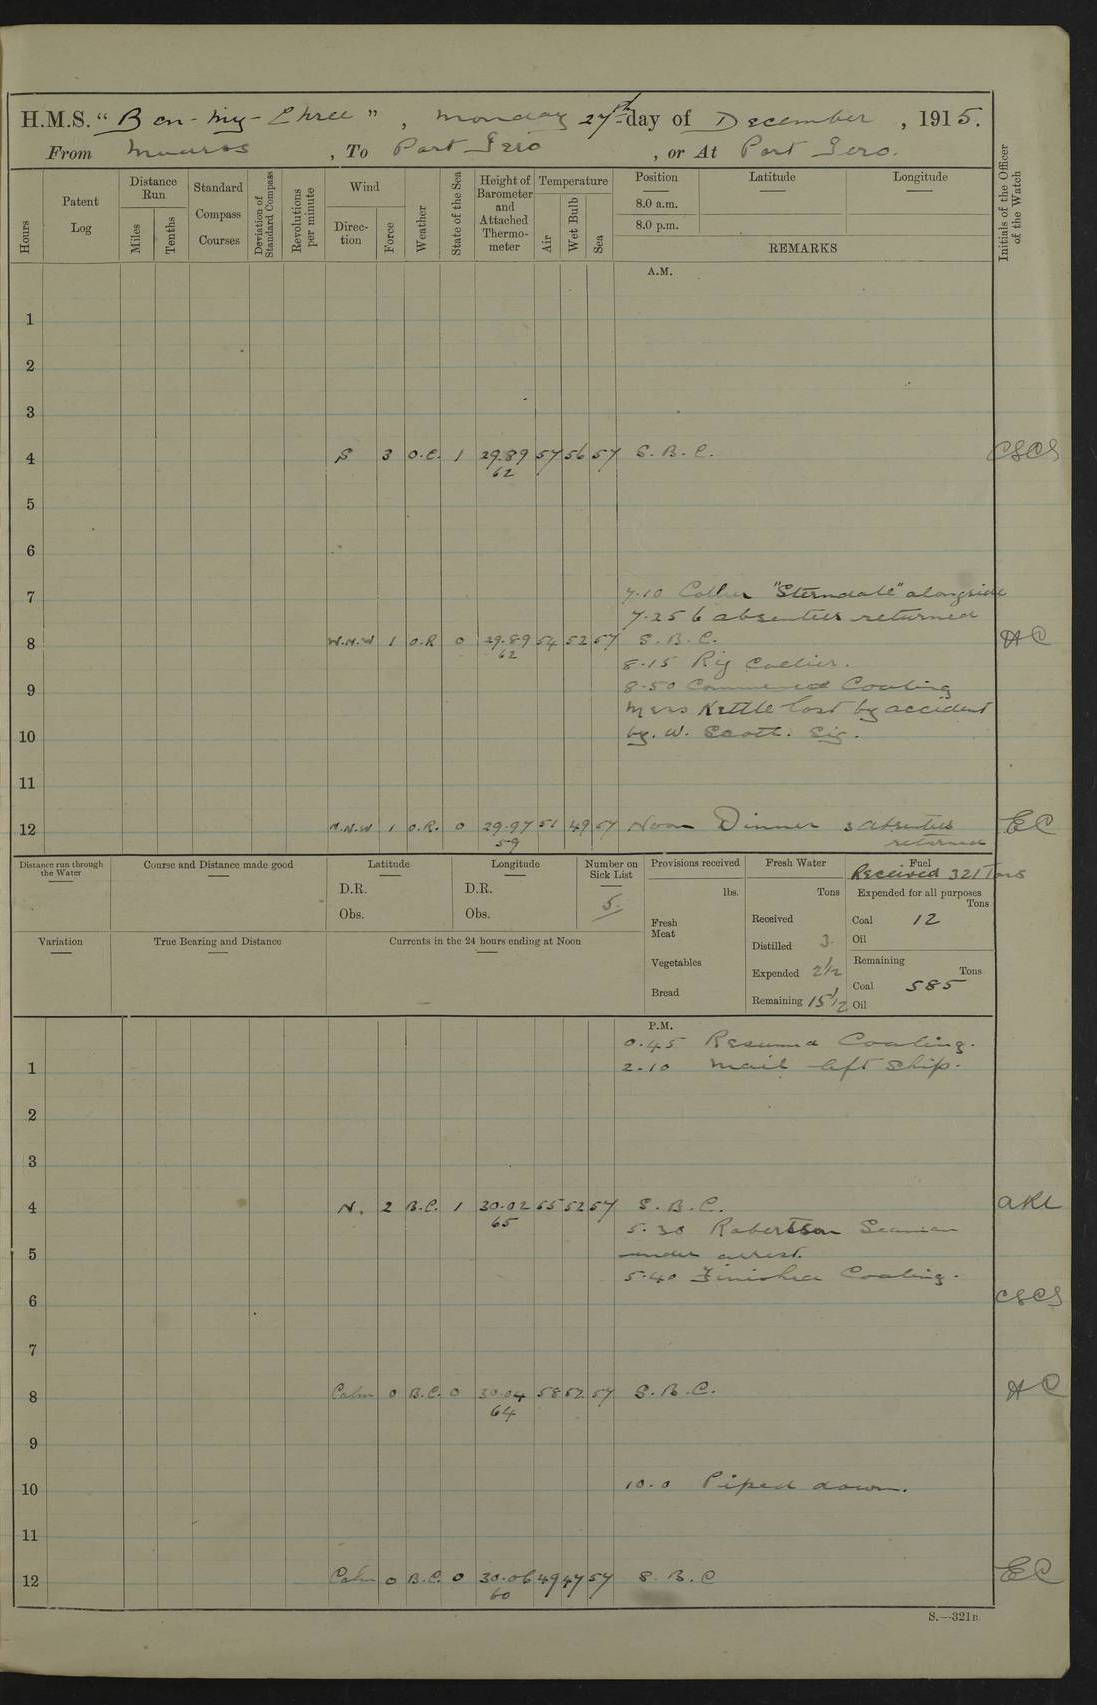 H.M.S. "Ben-my-Chree", Monday 27th day of December, 1915.
From Mudros, To Port Iero, or At Port Iero.
Hours
Patent Log
Distance Run
Miles
Tenths
Standard Compass Courses
Deviation of Standard Compass
Revolutions per minute
Wind
Direction
Force
Weather
State of the Sea
Height of Barometer and Attached Thermometer
Temperature
Air
Wet Bulb
Sea
Position
8.0 a.m.
8.0 p.m.
Latitude
Longitude
REMARKS
Initials of the Officer of the Watch
A.M.
1
2
3
4 S 3 O.C. 1 29.89 57 56 57 S.B.C. CSCS
62
5
6
7 7.10 Collier "Sterndale" alongside
7.25 6 absentees returned
8 W.N.W 1 O.R 0 29.89 54 52 57 S.B.C. HC
62
8.15 Rig Collier.
9 8.50 Commenced Coaling
Mess Kettle lost by accident
10 by. W. Scott. Sig.
11
12 N.N.W 1 O.R. 0 29.97 51 49 57 Noon Dinner 3 absentees EC
59 returned
Distance run through the Water
Course and Distance made good
Latitude
D.R.
Obs.
Longitude
D.R.
Obs.
Number on Sick List
5.
Provisions received
lbs.
Fresh Meat
Vegetables
Bread
Fresh Water
Tons
Received
Distilled 3.
Expended 2½
Remaining 15½
Fuel
Received 321 Tons
Expended for all purposes
Tons
Coal 12
Oil
Remaining
Tons
Coal 585
Oil
Variation
True Bearing and Distance
Currents in the 24 hours ending at Noon
P.M.
0.45 Resumed Coaling.
1 2.10 Mail left Ship.
2
3
4 N. 2 B.C. 1 30.02 55 52 57 S.B.C. ARL
65
5.30 Robertson Seaman
5 under arrest.
5.40 Finished Coaling.
6 CSCS
7
8 Calm 0 B.C. 0 30.04 58 52 57 S.B.C. HC
64
9
10 10.0 Piped down.
11
12 Calm 0 B.C. 0 30.06 49 47 57 S.B.C EC
60
S.—321B